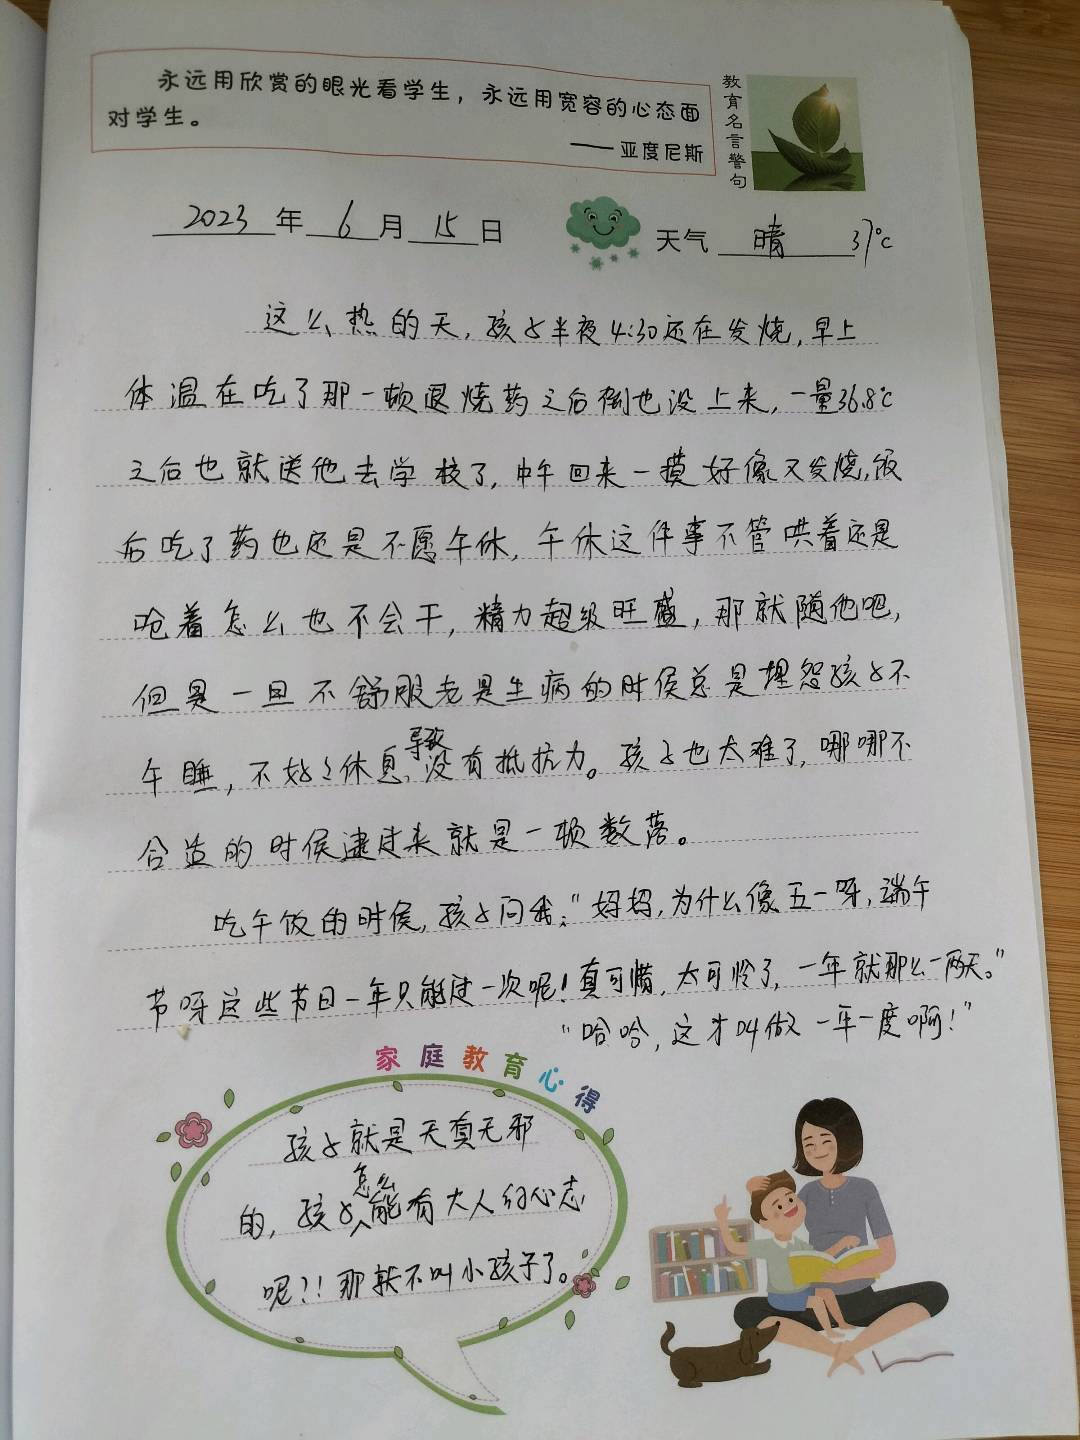 永远用欣赏的眼光看学生，永远用宽容的心态面
对学生。
——亚度尼斯
教育名言警句
2023年6月15日
天气 晴 37℃
这么热的天，孩子半夜4:30还在发烧，早上
体温在吃了那一顿退烧药之后倒也没上来，一量36.8℃
之后也就送他去学校了，中午回来一摸好像又发烧，饭
后吃了药也还是不愿午休，午休这件事不管哄着还是
呛着怎么也不会干，精力超级旺盛，那就随他吧，
但是一旦不舒服老是生病的时候总是埋怨孩子不
午睡，不好好休息，导致没有抵抗力。孩子也太难了，哪哪不
合适的时候逮过来就是一顿数落。
吃午饭的时候，孩子问我："妈妈，为什么像五一呀，端午
节呀这些节日一年只能过一次呢！真可惜，太可怜了，一年就那么一两天。"
"哈哈，这才叫做一年一度啊！"
家庭教育心得
孩子就是天真无邪
的，孩子怎么能有大人的心志
呢？！那就不叫小孩子了。